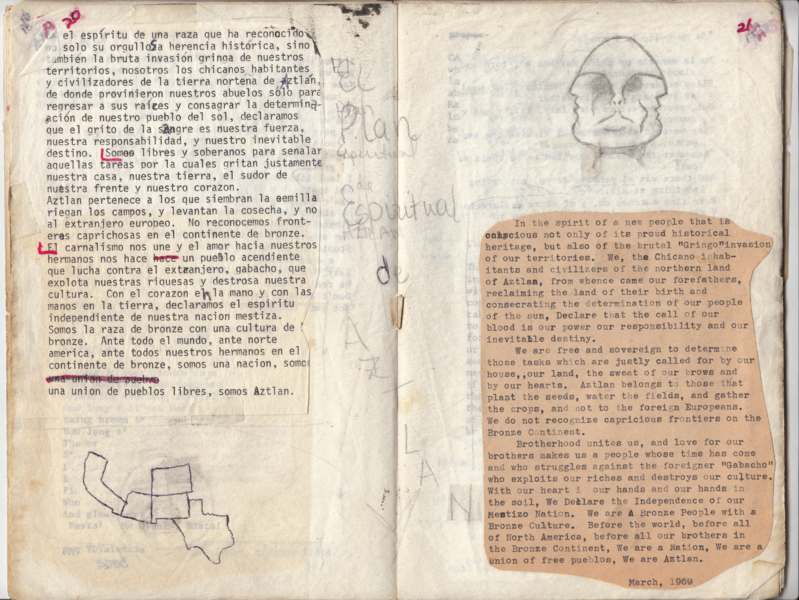 20
el espíritu de una raza que ha reconocido
no solo su orgullosa herencia histórica, sino
también la bruta invasión gringa de nuestros
territorios, nosotros los chicanos habitantes
y civilizadores de la tierra nortena de Aztlán,
de donde provinieron nuestros abuelos sólo para
regresar a sus raíces y consagrar la determin-
ación de nuestro pueblo del sol, declaramos
que el grito de la sangre es nuestra fuerza,
nuestra responsabilidad, y nuestro inevitable
destino. Somos libres y soberanos para senalar
aquellas tareas por la cuales gritan justamente
nuestra casa, nuestra tierra, el sudor de
nuestra frente y nuestro corazon.
Aztlan pertenece a los que siembran la semilla
riegan los campos, y levantan la cosecha, y no
al extranjero europeo. No reconocemos front-
eras caprichosas en el continente de bronze.
El carnalismo nos une y el amor hacia nuestros
hermanos nos hace hace un pueblo acendiente
que lucha contra el extranjero, gabacho, que
explota nuestras riquesas y destrosa nuestra
cultura. Con el corazon en la mano y con las
manos en la tierra, declaramos el espiritu
independiente de nuestra nacion mestiza.
Somos la raza de bronze con una cultura de
bronze. Ante todo el mundo, ante norte
america, ante todos nuestros hermanos en el
continente de bronze, somos una nacion, somos
una union de pueblo
una union de pueblos libres, somos Aztlan.
El
Plan
espiritual
de
Espiritual
AZTLAN
de
A
Z
T
L
A
N
21
In the spirit of a new people that is
conscious not only of its proud historical
heritage, but also of the brutal "Gringo"invasion
of our territories. We, the Chicano inhab-
itants and civilizers of the northern land
of Aztlan, from whence came our forefathers,
reclaiming the land of their birth and
consecrating the determination of our people
of the sun, Declare that the call of our
blood is our power our responsibility and our
inevitable destiny.
We are free and sovereign to determine
those tasks which are justly called for by our
house,,our land, the sweat of our brows and
by our hearts. Aztlan belongs to those that
plant the seeds, water the fields, and gather
the crops, and not to the foreign Europeans.
We do not recognize capricious frontiers on the
Bronze Continent.
Brotherhood unites us, and love for our
brothers makes us a people whose time has come
and who struggles against the foreigner "Gabacho"
who exploits our riches and destroys our culture.
With our heart i our hands and our hands in
the soil, We Declare the Independence of our
Mestizo Nation. We are A Bronze People with a
Bronze Culture. Before the world, before all
of North America, before all our brothers in
the Bronze Continent, We are a Nation, We are a
union of free pueblos, We are Aztlan.
March, 1969